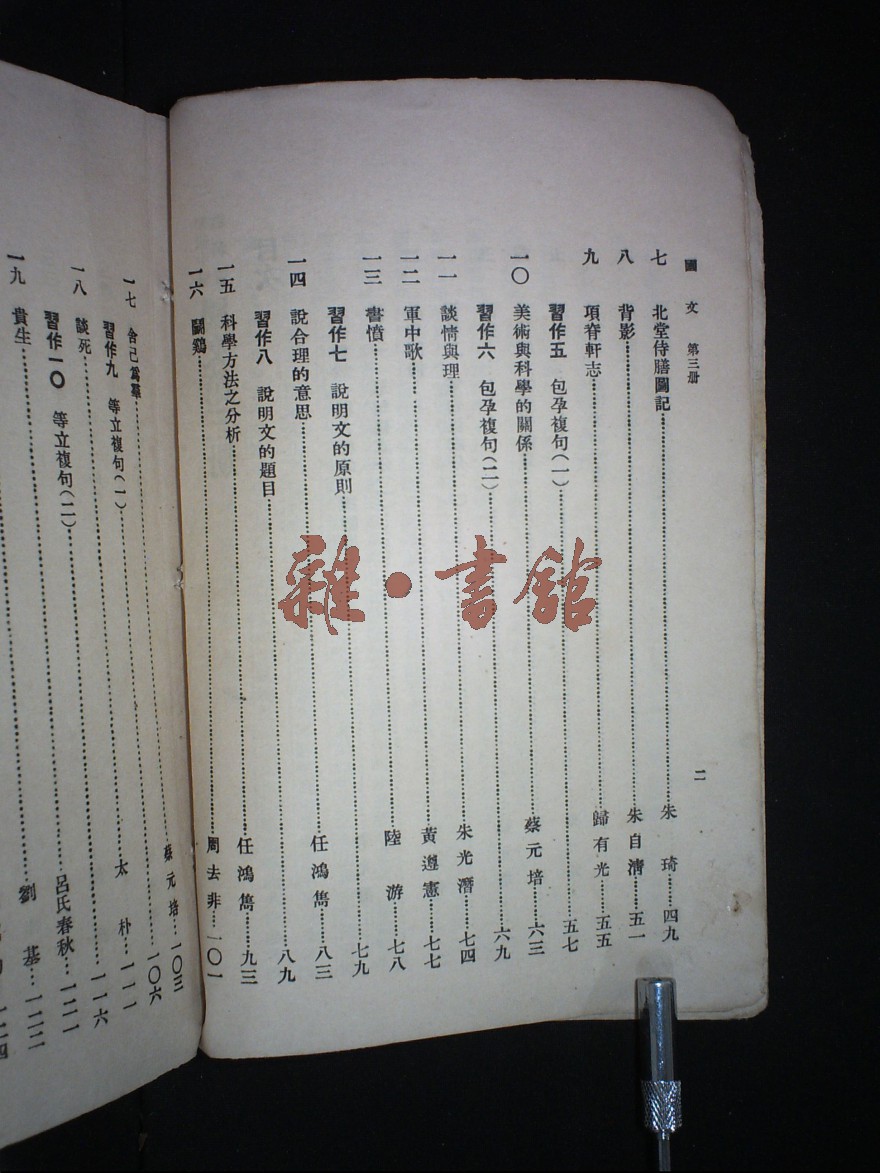 國文 第三册
二
七 北堂侍膳圖記……朱琦……四九
八 背影……朱自清……五一
九 項脊軒志……歸有光……五五
習作五 包孕複句(一)……五七
一〇 美術與科學的關係……蔡元培……六三
習作六 包孕複句(二)……六九
一一 談情與理……朱光潛……七四
一二 軍中歌……黃遵憲……七七
一三 書憤……陸游……七八
習作七 說明文的原則……七九
一四 說合理的意思……任鴻雋……八三
習作八 說明文的題目……八九
一五 科學方法之分析……任鴻雋……九三
一六 鬬鷄……周去非……一〇一
一七 舍己爲羣……蔡元培……一〇三
習作九 等立複句(一)……一〇六
一八 談死……太朴……一一一
習作一〇 等立複句(二)……一一六
一九 貴生……呂氏春秋……一二一
劉基……一二二
一二四
雜·書館